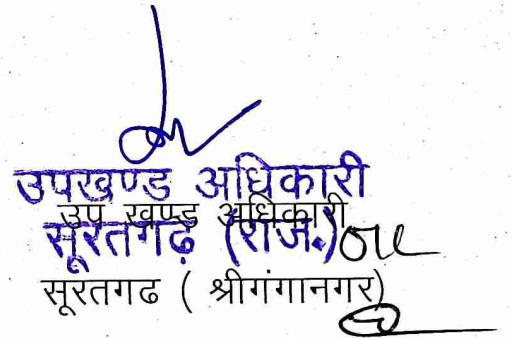 उपखण्ड अधिकारी
उप खण्ड अधिकारी
सूरतगढ़ (राज.)
सूरतगढ ( श्रीगंगानगर)